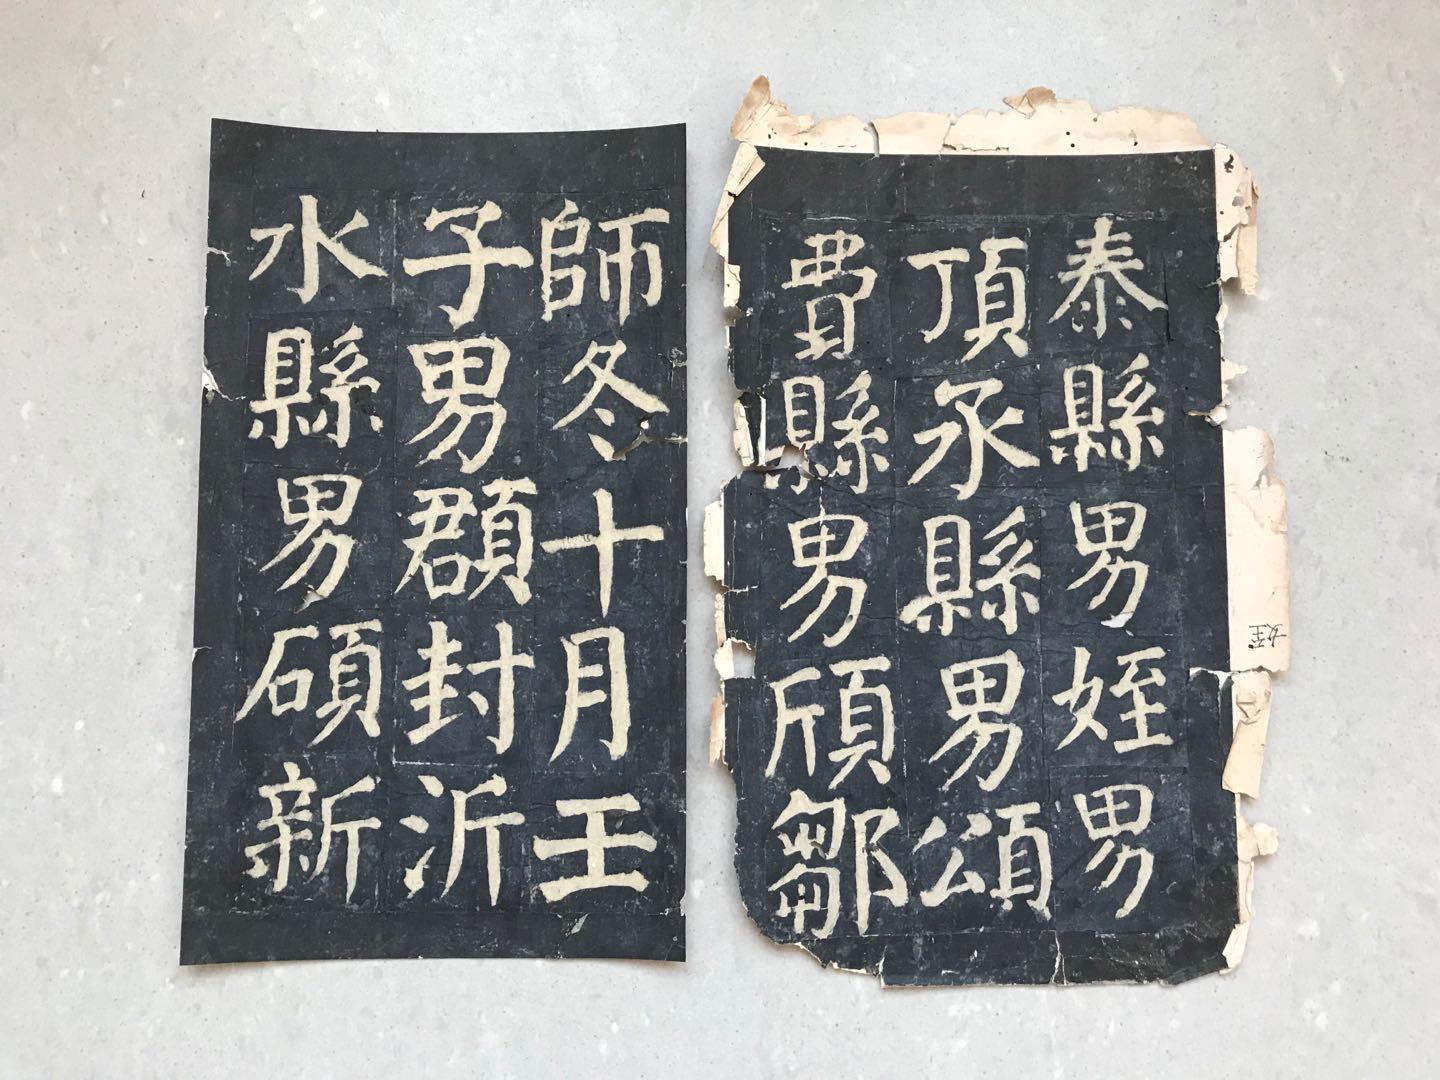 師冬十月王
子男頵封沂
水縣男碩新
泰縣男姪男
頂承縣男頌
費縣男頎鄒
姪